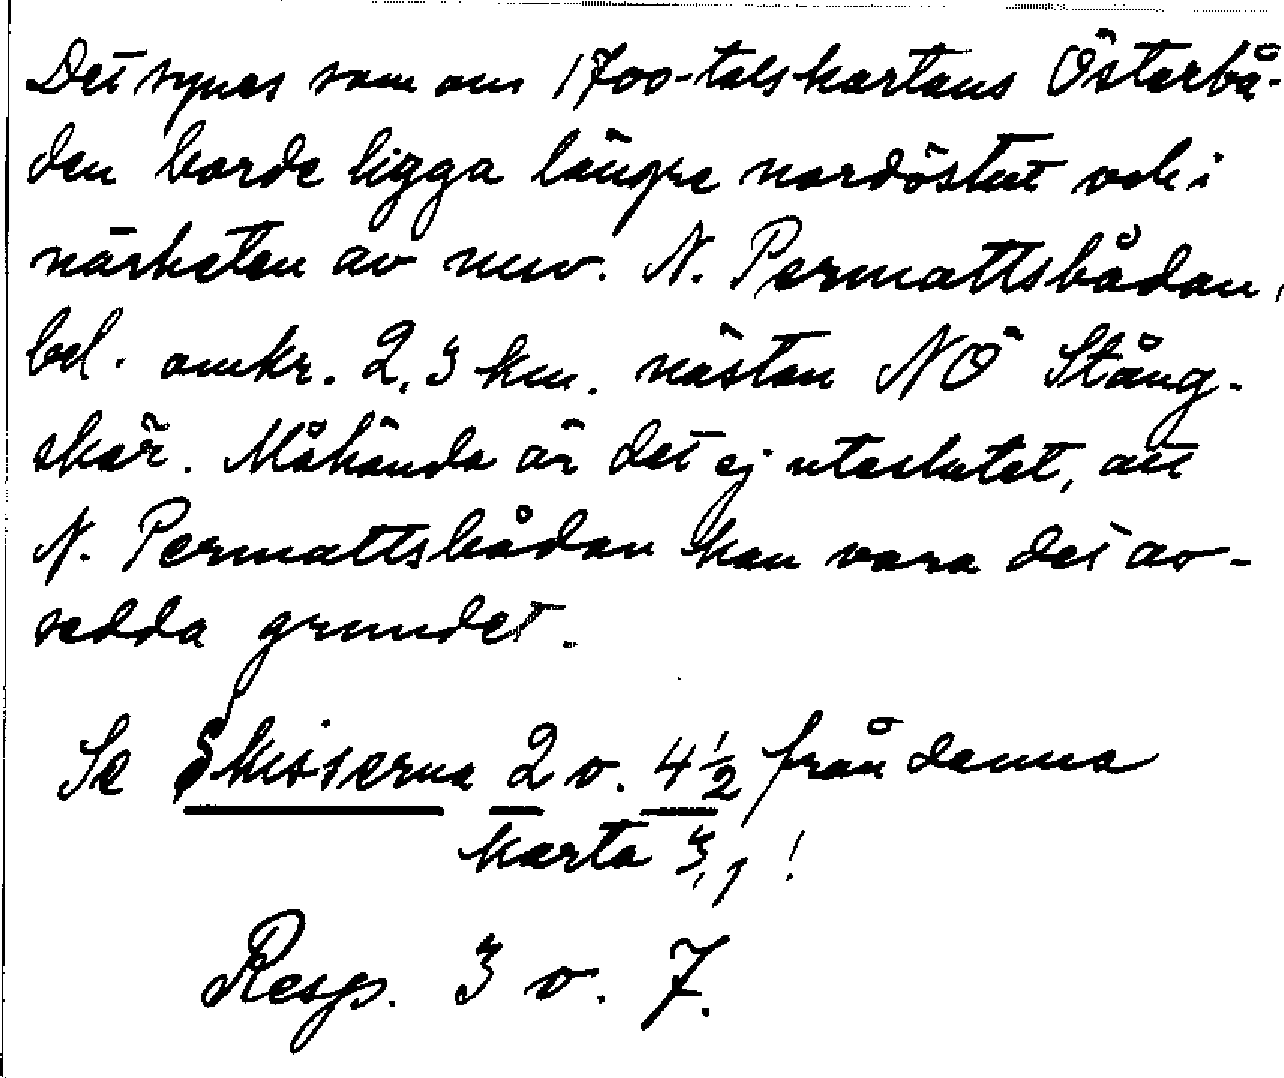 Det synes som om 1700-talskartans Österbå-
den borde ligga längre nordöstut och i
närheten av nuv. N. Permattsbådan,
bel. omkr. 2,3 km. nästan NÖ Stång-
skär. Måhända är det ej uteslutet, att
N. Permattsbådan kan vara det av-
sedda grundet.
Se Skisserna 2 o. 4½ från denna
karta 3,1!
Resp. 3 o. 7.